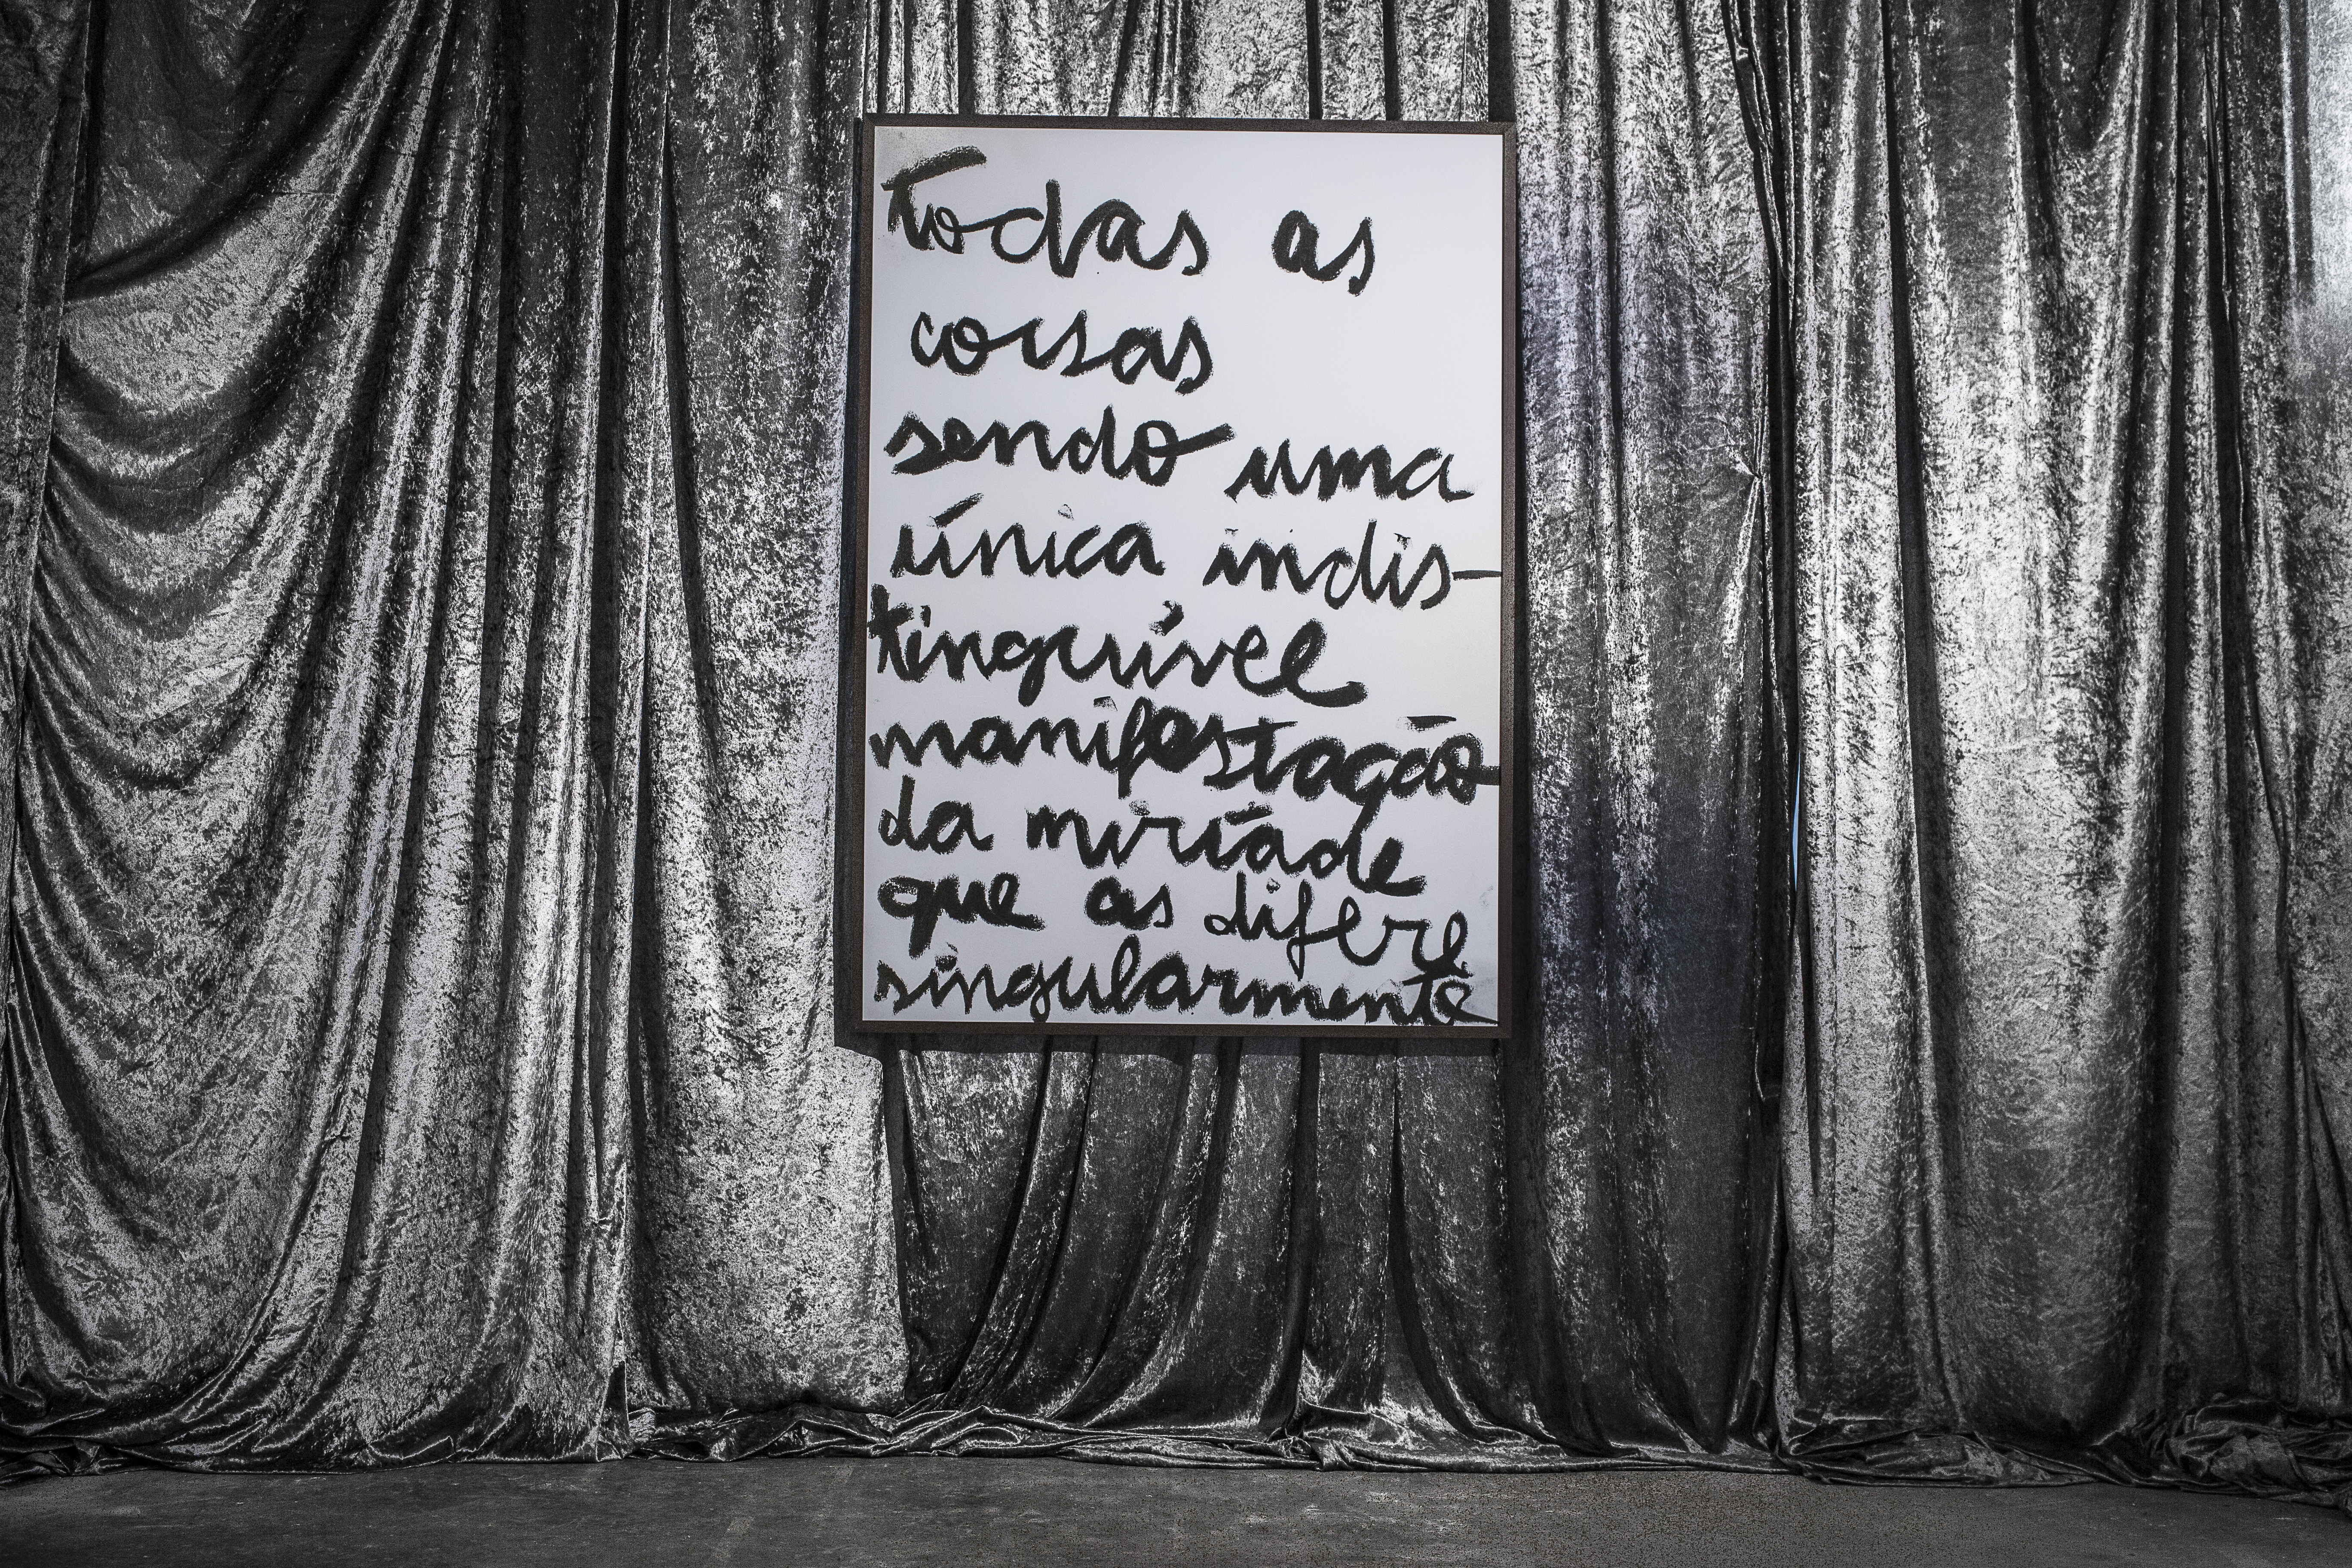 Todas as
coisas
sendo uma
única indis-
tinguível
manifestação
da miríade
que as difere
singularmente